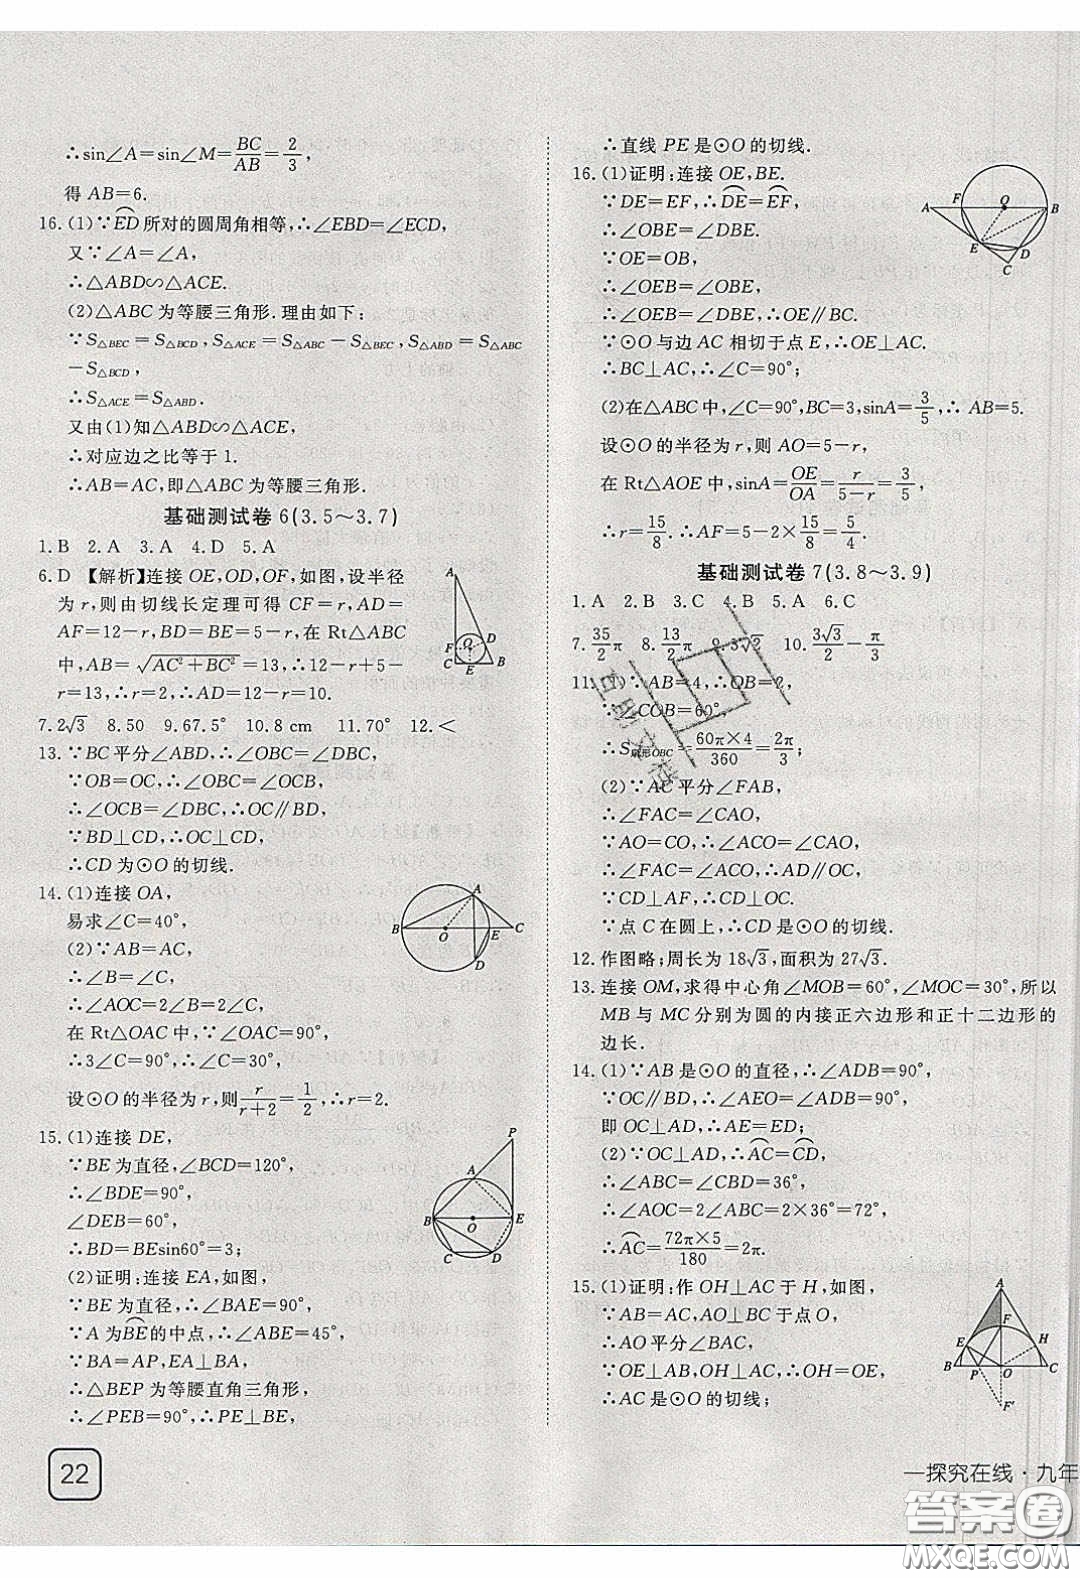 ∴sin∠A=sin∠M=BC/AB=2/3,
得 AB=6.
16.(1)∵ED⌒所对的圆周角相等,∴∠EBD=∠ECD,
又∵∠A=∠A,
∴△ABD∽△ACE.
(2)△ABC 为等腰三角形.理由如下:
∵S△BEC=S△BCD,S△ACE=S△ABC−S△BEC,S△ABD=S△ABC
−S△BCD,
∴S△ACE=S△ABD.
又由(1)知△ABD∽△ACE,
∴对应边之比等于 1.
∴AB=AC,即△ABC 为等腰三角形.
基础测试卷 6(3.5～3.7)
1.B 2.A 3.A 4.D 5.A
6.D 【解析】连接 OE,OD,OF,如图,设半径
为 r,则由切线长定理可得 CF=r,AD=
AF=12−r,BD=BE=5−r,在 Rt△ABC
中,AB=√(AC²+BC²)=13,∴12−r+5−
r=13,∴r=2,∴AD=12−r=10.
7.2√3 8.50 9.67.5° 10.8 cm 11.70° 12.<
13.∵BC 平分∠ABD,∴∠OBC=∠DBC,
∵OB=OC,∴∠OBC=∠OCB,
∴∠OCB=∠DBC,∴OC∥BD,
∵BD⊥CD,∴OC⊥CD,
∴CD 为⊙O 的切线.
14.(1)连接 OA,
易求∠C=40°,
(2)∵AB=AC,
∴∠B=∠C,
∴∠AOC=2∠B=2∠C,
在 Rt△OAC 中,∵∠OAC=90°,
∴3∠C=90°,∴∠C=30°,
设⊙O 的半径为 r,则r/(r+2)=1/2,∴r=2.
A
F O D
C E B
A
B O E C
D
15.(1)连接 DE,
∵BE 为直径,∠BCD=120°,
∴∠BDE=90°,
∠DEB=60°,
∴BD=BEsin60°=3;
(2)证明:连接 EA,如图,
∵BE 为直径,∴∠BAE=90°,
∵A 为BE⌒的中点,∴∠ABE=45°,
∵BA=AP,EA⊥BA,
∴△BEP 为等腰直角三角形,
∴∠PEB=90°,∴PE⊥BE,
P
A
B O E
C D
22
∴直线 PE 是⊙O 的切线.
16.(1)证明:连接 OE,BE.
∵DE=EF,∴DE⌒=EF⌒,
∴∠OBE=∠DBE.
∵OE=OB,
∴∠OEB=∠OBE,
∴∠OEB=∠DBE,∴OE∥BC.
∵⊙O 与边 AC 相切于点 E,∴OE⊥AC.
∴BC⊥AC,∴∠C=90°;
(2)在△ABC 中,∠C=90°,BC=3,sinA=3/5,∴AB=5.
设⊙O 的半径为 r,则 AO=5−r,
在 Rt△AOE 中,sinA=OE/OA=r/(5−r)=3/5,
∴r=15/8.∴AF=5−2×15/8=5/4.
A F O B
E D
C
基础测试卷 7(3.8～3.9)
1.A 2.B 3.C 4.B 5.A 6.C
7.35/2π 8.13/2π 9.3√3 10.3√3/2−π/3
11.(1)∵AB=4,∴OB=2,
∵∠COB=60°,
∴S扇形OBC=60π×4/360=2π/3.
(2)∵AC 平分∠FAB,
∴∠FAC=∠CAO,
∵AO=CO,∴∠ACO=∠CAO,
∴∠FAC=∠ACO,∴AD∥OC,
∵CD⊥AF,∴CD⊥OC.
∵点 C 在圆上,∴CD 是⊙O 的切线.
12.作图略;周长为 18√3,面积为 27√3.
13.连接 OM,求得中心角∠MOB=60°,∠MOC=30°,所以
MB 与 MC 分别为圆的内接正六边形和正十二边形的
边长.
14.(1)∵AB 是⊙O 的直径,∴∠ADB=90°,
∵OC∥BD,∴∠AEO=∠ADB=90°,
即 OC⊥AD,∴AE=ED;
(2)∵OC⊥AD,∴AC⌒=CD⌒,
∴∠ABC=∠CBD=36°,
∴∠AOC=2∠ABC=2×36°=72°,
∴AC⌒=72π×5/180=2π.
15.(1)证明:作 OH⊥AC 于 H,如图,
∵AB=AC,AO⊥BC 于点 O,
∴AO 平分∠BAC,
∵OE⊥AB,OH⊥AC,∴OH=OE,
∴AC 是⊙O 的切线;
A
E F H
B P O C
F′
一探究在线·九年
答案圈
MXQE.COM